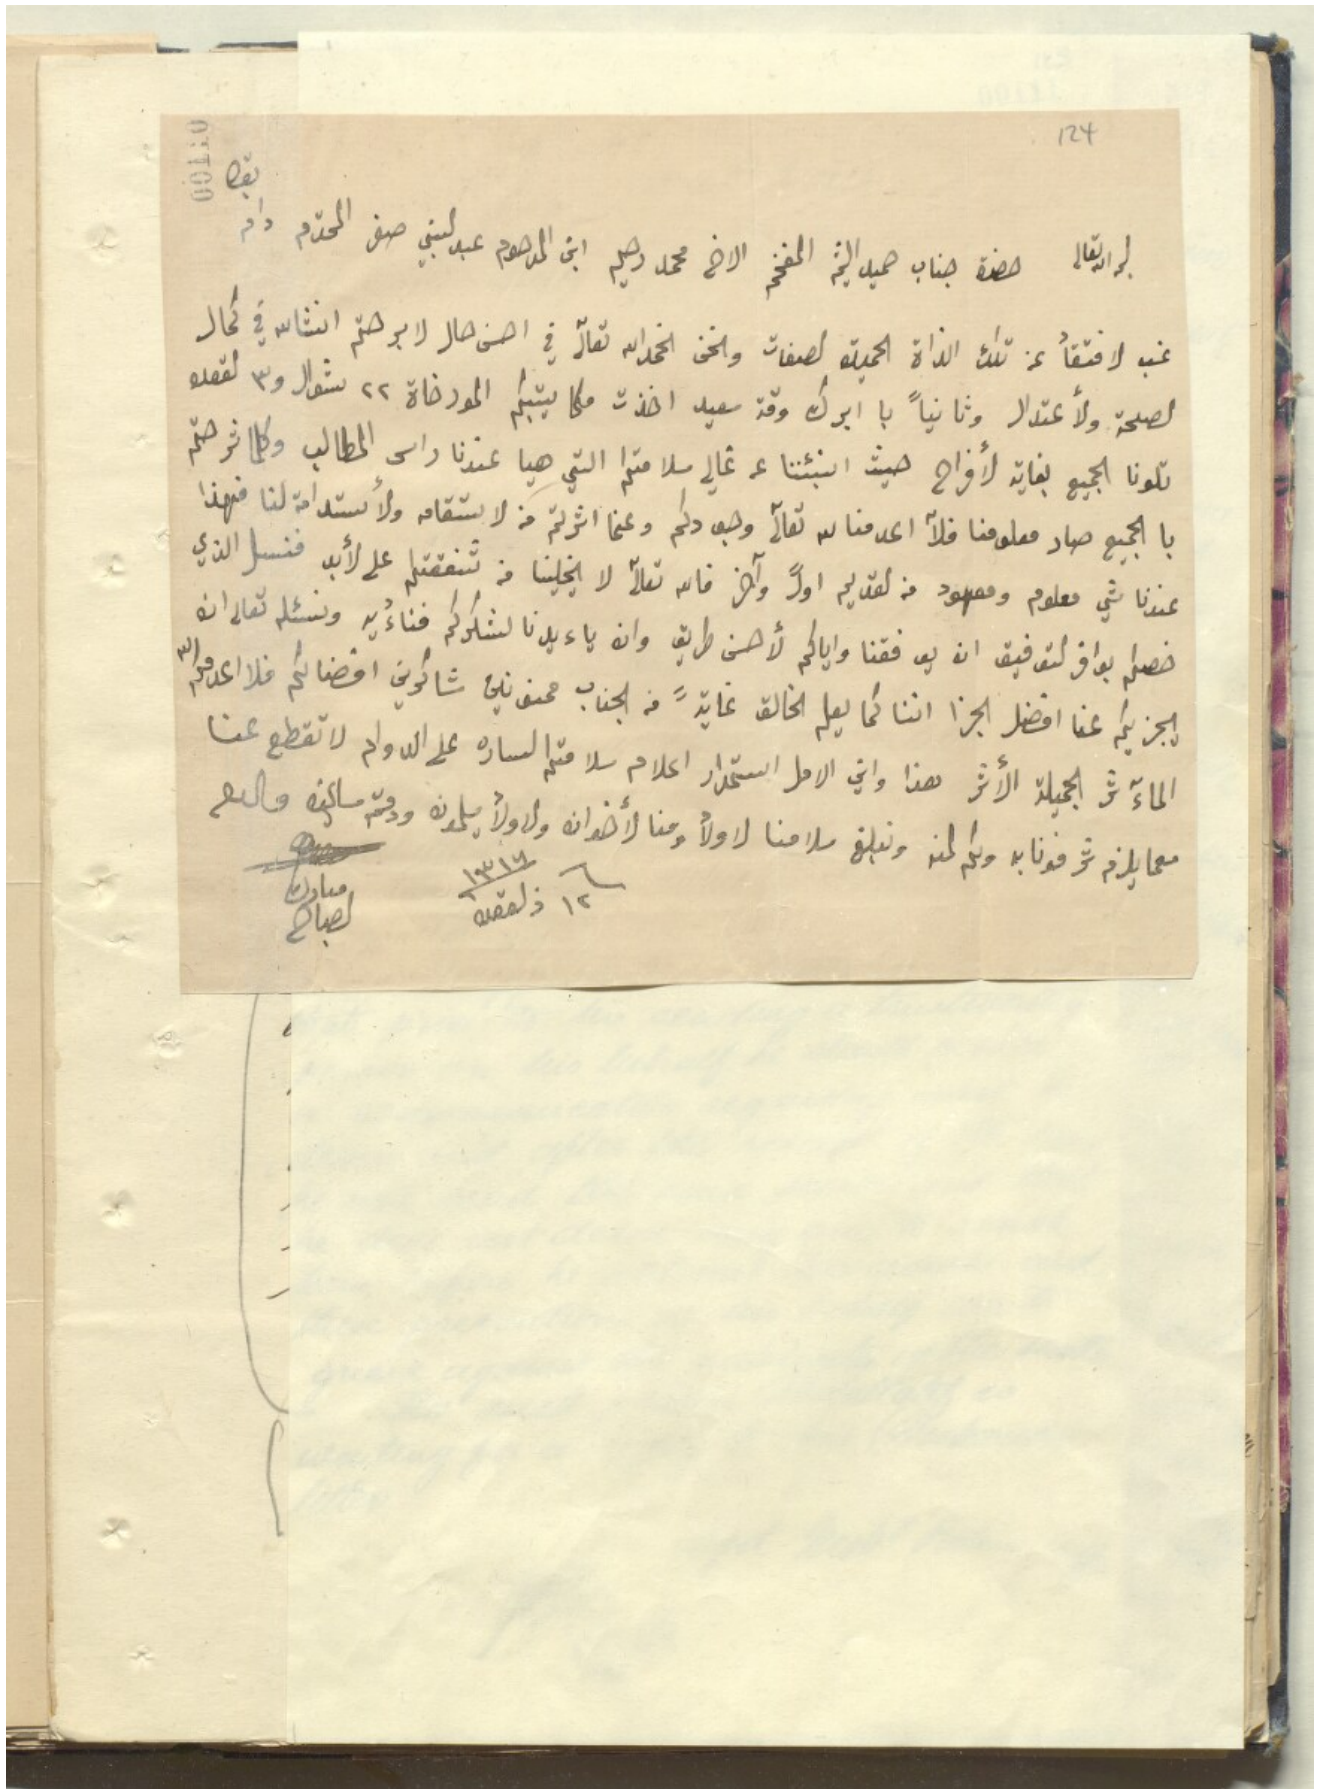 124
001100
بقاه
لحمد الله تعالى حضرة جناب حميد الشيم المفخم الاخ محمد رحيم ابن المرحوم عبد لنبي صفر المحترم دام
غب لافتقاُ عن تلك الذاة الحميدة لصفات ونحن نحمد الله تعالىٓ في احسن حال لابرحتم انشاالله في كمال
لصحة ولأعتدال وثانياً با ابرك وقة سعيد اخذت مكاتيبكم المورخاة ٢٢ شوال و٣ لقعده
تلونا الجميع بغاية لأفراح حيث انبئتنا عن غالي سلامتكم التي هيا عندنا راس المطالب وكلما شرحتم
با الجميع صار معلومنا فلآ اعدمنا الله تعالىٓ وجودكم وعنما اشرتم من لاستقامه ولأستدامة لنا فهذا
عندنا شي معلوم ومعهود من لقديم اولاً وآخر فالله تعالىٓ لا يخلينا من شفقتكم على لأبد فنسئل الذي
خصكم بوافر لتوفيق ان يوفقنا واياكم لأحسن طريق وان ياءيدنا لشكركم فناءُيه ونسئله تعالى ان
يجزيكم عنا افضل الجزا اننا كما يعلم الخالق غايةً من الجناب ممنونين شاكرين افضالكم فلا اعدمكم الله
المآثر الجميلة الأثر هذا واني الامل استمرار اعلام سلامتكم لساره على الدوام لا تقطع عنا
معما يلزم شرفونا به ولكم لمنه ونبلغ سلامنا لاولاد ومنا لأخوان ولاولاد يسلمون ودمتم سالمين والسلام
١٢ ذلقعده ١٣١٦
مبارك
لصباح